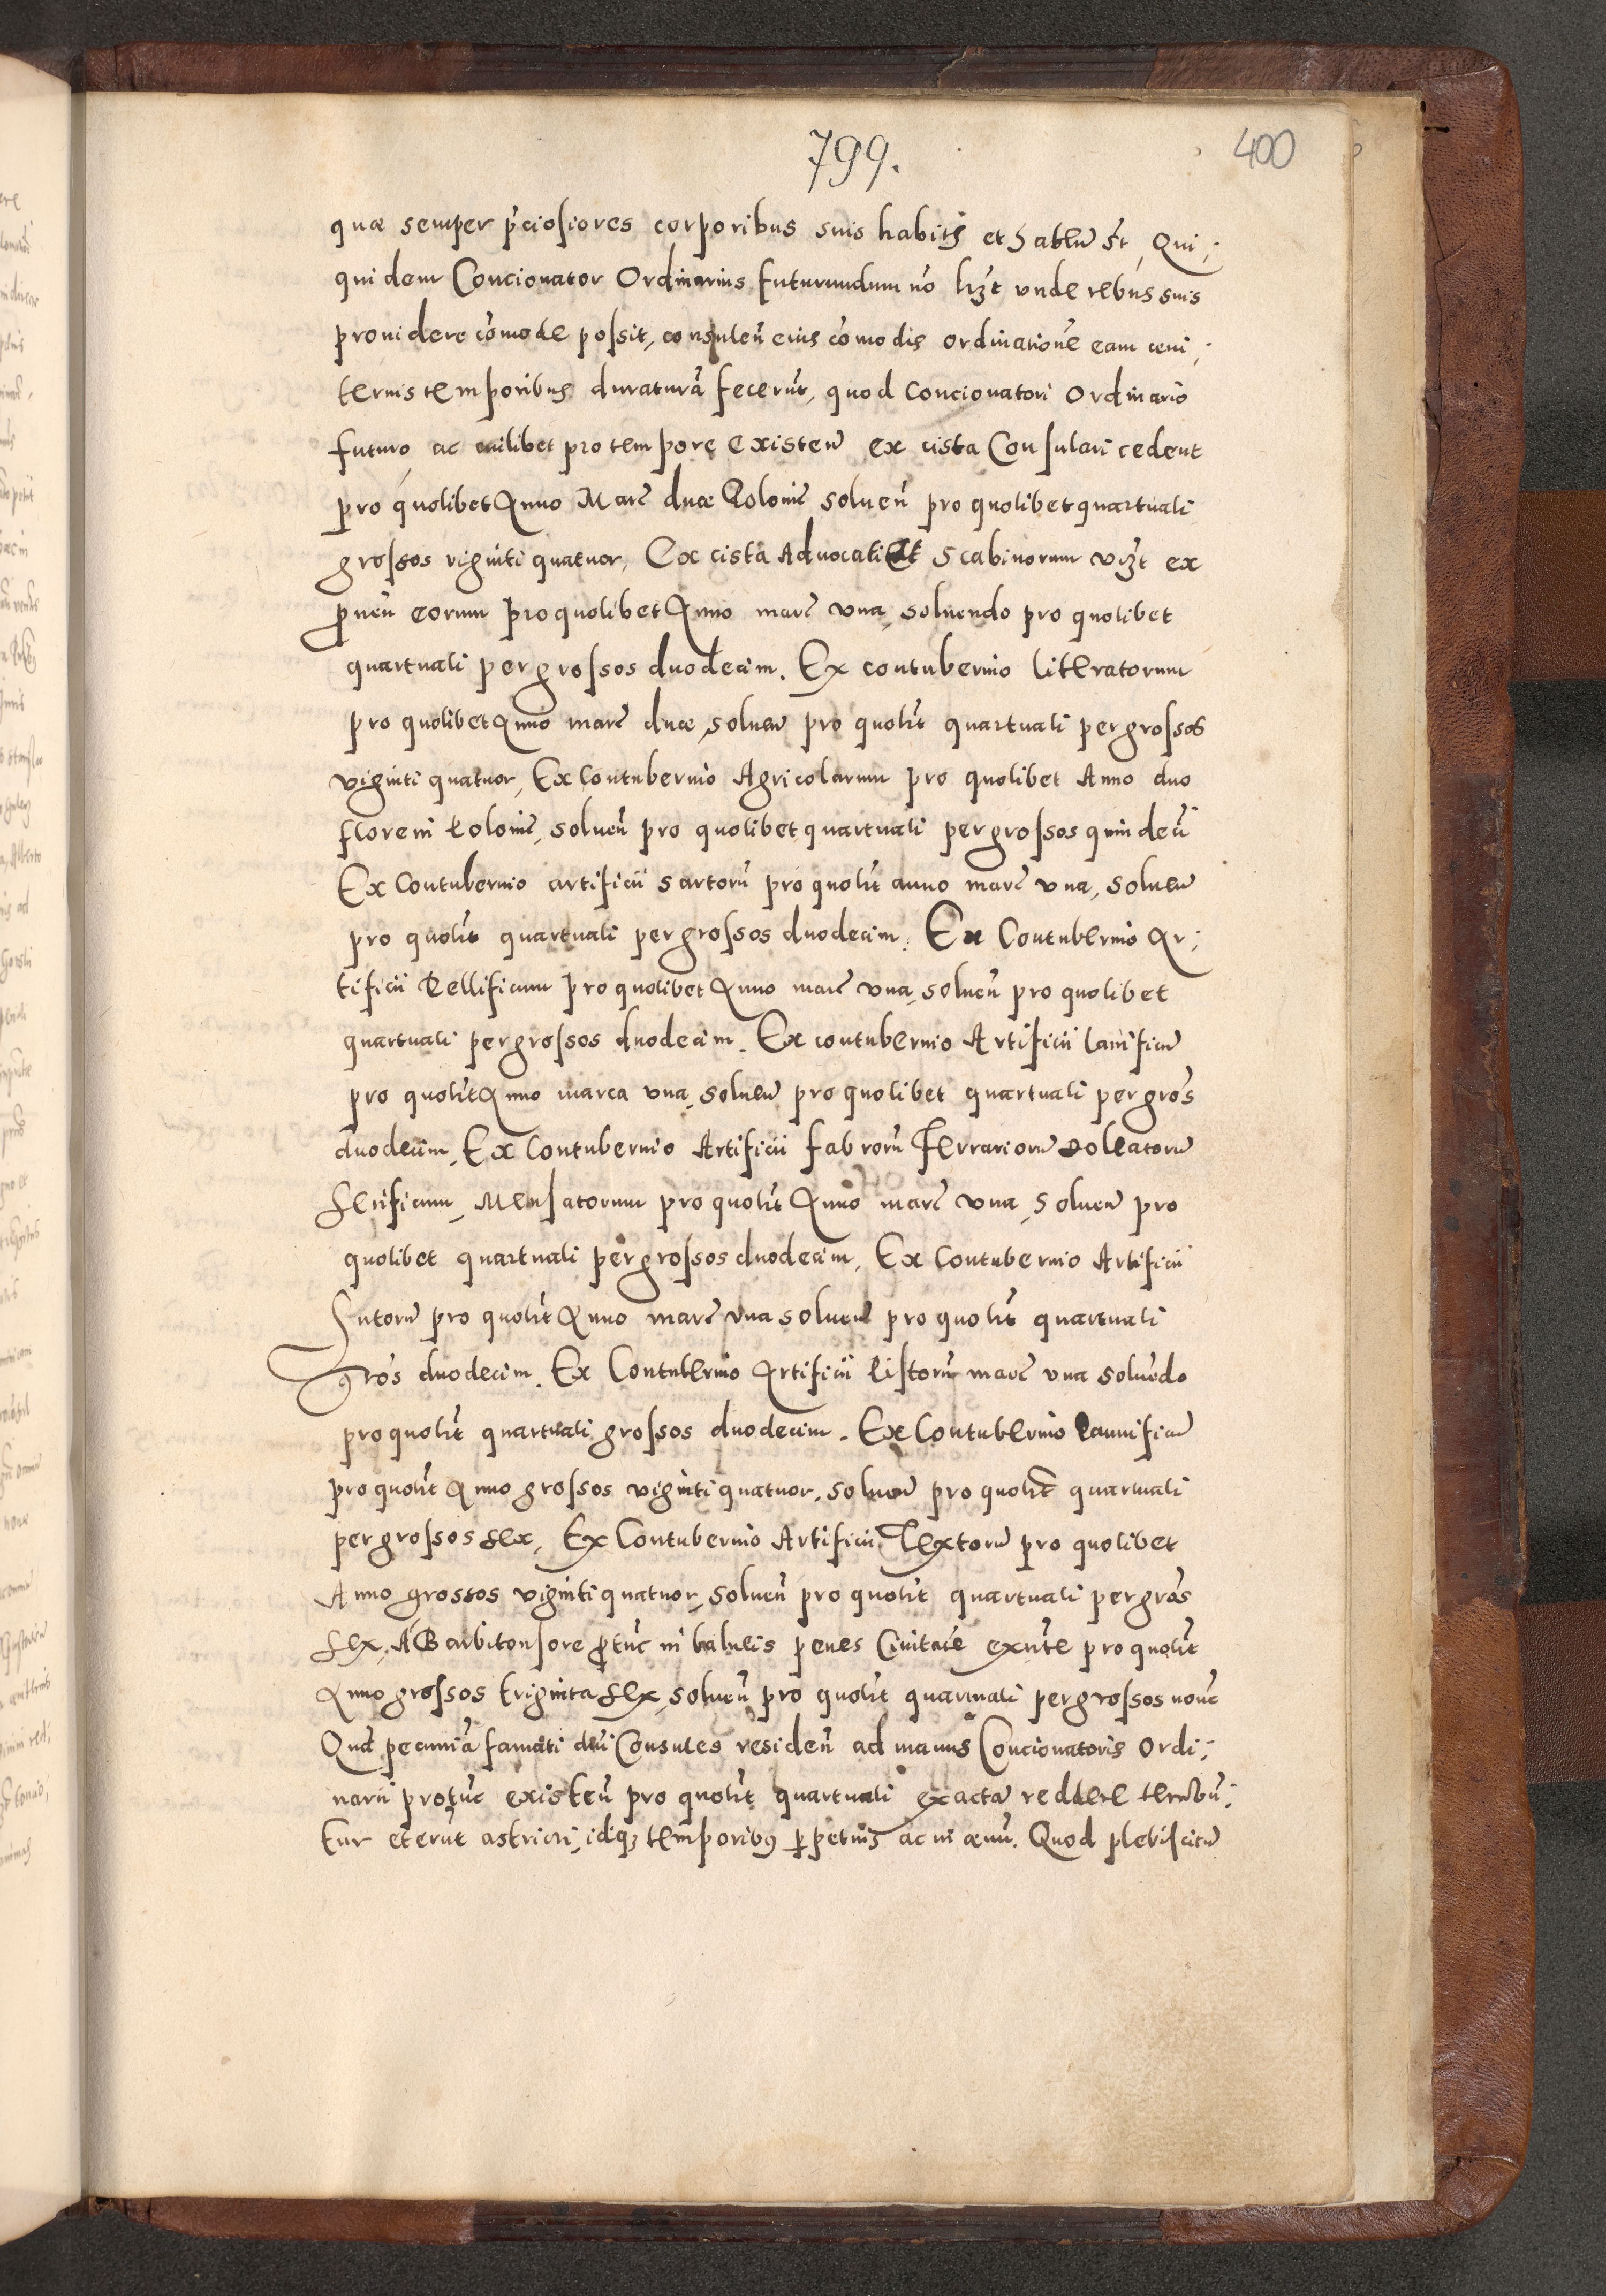 799.
400
quæ semper p̃ciosiores corporibus suis habitẽ et habend̃ sũt, Qui;
quidem Concionator Ordinarius futurundum nõ hʒt vnde rebus suis
prouidere cõmode possit, consulen̄ eius cõmodis ordinationẽ eam æui;
ternis temporibus duraturã fecerũt, quod Concionatori Ordinario
futuro, ac cuilibet pro tempore existen̄ ex cista Consulari cedent
pro quolibet Anno Marc̃ duæ Poloniẽ soluen̄ pro quolibet quartuali
grossos viginti quatuor, Ex cista Aduocati Et Scabinorum vizt ex
ꝓuen̄ eorum pro quolibet Anno marc̃ vna, soluendo pro quolibet
quartuali per grossos duodecim. Ex contubernio literatorum
pro quolibet Anno marc̃ duæ, soluen̄ pro quolit̃ quartuali per grossos
viginti quatuor, Ex Contubernio Agricolarum pro quolibet Anno duo
floreni Poloniẽ, soluen̄ pro quolibet quartuali per grossos quindecĩ
Ex Contubernio artificii sartorũ pro quolit̃ anno marc̃ vna, soluen̄
pro quolit̃ quartuali per grossos duodecim. Ex Contubernio Ar;
tificii Pellificum pro quolibet Anno marc̃ vna, soluen̄ pro quolibet
quartuali per grossos duodecim. Ex contubernio Artificii lanificũ
pro quolit̃ Anno marca vna, soluen̄ pro quolibet quartuali per gros̃
duodecim, Ex Contubernio Artificii fabrorũ Ferrariorũ doleatorũ
serificum, Mensatorum pro quolit̃ Anno marc̃ vna, soluen̄ pro
quolibet quartuali per grossos duodecim, Ex Contubernio Artificii
Sutorũ pro quolit̃ Anno marc̃ vna soluen̄ pro quolit̃ quartuali
Gros̃ duodecim. Ex Contubernio Artificii Pistorũ marc̃ vna soluẽdo
pro quolit̃ quartuali grossos duodecim. Ex Contubernio Pannificũ
pro quolit̃ Anno grossos viginti quatuor, soluen̄ pro quolit̃ quartuali
per grossos sex, Ex Contubernio Artificii Textorũ pro quolibet
Anno grossos viginti quatuor, soluen̄ pro quolit̃ quartuali per gros̃
sex, A Barbitonsore ꝓtũc in balneis penes Ciuitatẽ exñte pro quolit̃
Anno grossos triginta sex, soluen̄ pro quolit̃ quartuali per grossos nouẽ
Quã pecuniã famati dñi Consules residen̄ ad manus Concionatoris Ordi;
narii protũc existen̄ pro quolit̃ quartuali exactã reddere tenebũ;
tur et erũt astricti, idqʒ temporibꝰ ꝑpetuis ac in æuũ. Quod plebiscitũ